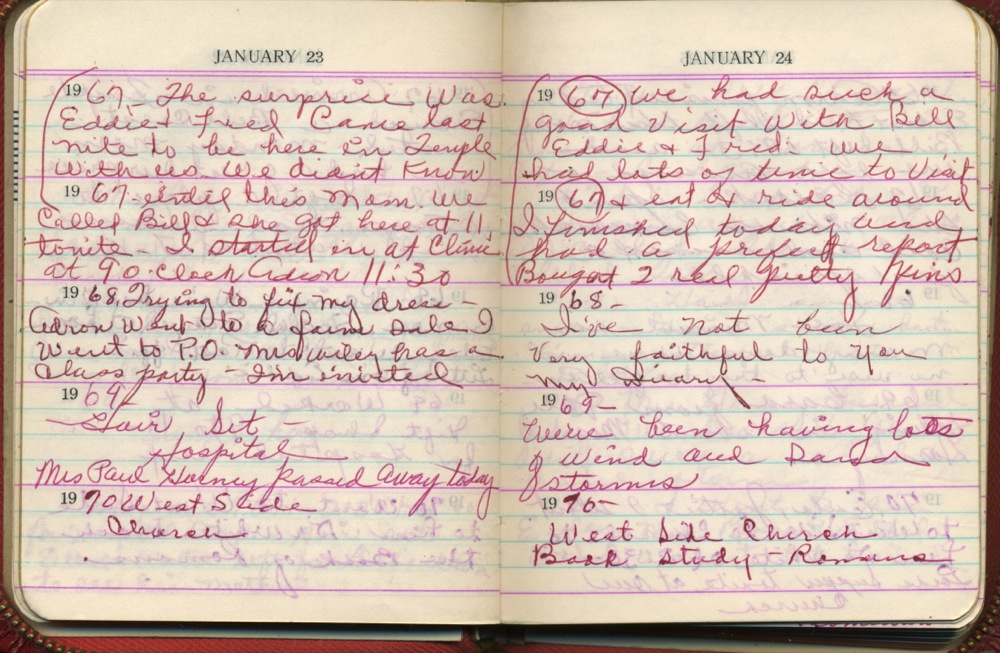 JANUARY 23
1967. The surprise was
Eddie & Fred Came last
nite to be here in Temple
with us. We didn't Know
1967- until this Morn. We
Called Bill & she got here at 11
tonite - I started in at Clinic
at 9 o-clock Adron 11:30
1968, Trying to fix my dress -
Adron Went to a farm sale I
Went to P.O. Mrs Wiley has a
Class party - I'm invited
1969-
Hair Set -
Hospital
Mrs Paul Gurney passed Away today
1970 West Side
Church.
JANUARY 24
1967 We had such a
good Visit With Bill
Eddie & Fred. We
had lots of time to Visit
1967 & eat & ride around
I finished today and
had a prefect report
Bought 2 real pretty pins
1968-
I've Not been
Very faithful to You
my Diary -
1969-
We've been having lots
of wind and Sand
storms
1970-
West Side Church
Book Study - Romans